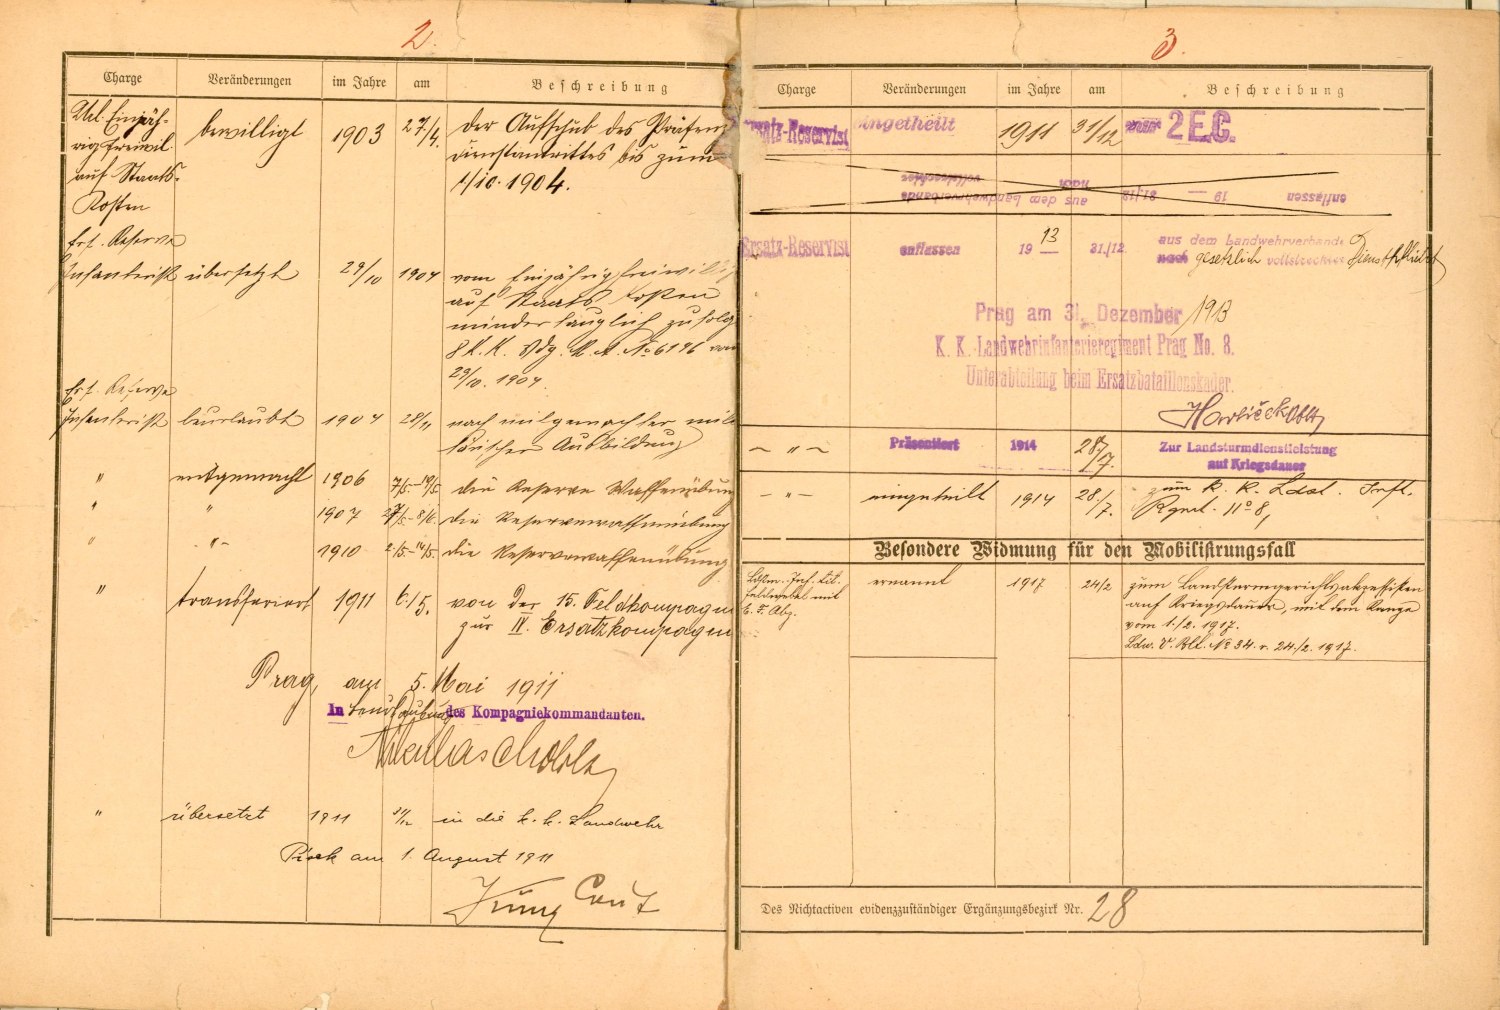 2.
Charge Veränderungen im Jahre am Beschreibung
Einjäh- bewilligt 1903 27./4. der Aufschub des Präsenz
freiwil. dienstantrittes bis zum
auf Staats- 1/10. 1904.
Kosten
Ers. Reserve
Infanterist übersetzt 29/10 1904 vom Einjährig freiwillig
auf Staats Kosten
minder tauglich zufolge
No 6196 vom
29/10. 1904.
Ers. Reserve
Infanterist beurlaubt 1904 28/11 nach mitgemachter mili
tärischer Ausbildung
" mitgemacht 1906 7/5.–19/5 die Reserve Waffenübung
" " 1907 27/5.–8/6. die Reservewaffenübung
" "– 1910 2/5.–14/5 die Reservewaffenübung
" transferiert 1911 6./5. von der 15. Feldkompagnie
zur IV. Ersatzkompagnie
Prag, am 5. Mai 1911
In Beurlaubung des Kompagniekommandanten.
Nikolaus Oblt
" übersetzt 1911 31/12 in die k. k. Landwehr
Pisek am 1. August 1911
3.
Charge Veränderungen im Jahre am Beschreibung
Ersatz-Reservist eingetheilt 1911 31/12 2 E.C.
entlassen 19 — 31./12 aus dem Landwehrverbande
nach vollstreckter
Ersatz-Reservist entlassen 19 13 — 31./12 aus dem Landwehrverbande
nach gesetzlich vollstreckter Dienstpflicht
Prag am 31. Dezember 1913
K. K. Landwehrinfanterieregiment Prag No. 8.
Unterabteilung beim Ersatzbataillonskader.
Horliček Oblt
– " – Präsentiert 1914 28./7. Zur Landsturmdienstleistung
auf Kriegsdauer
– " – eingeteilt 1914 28./7. zum k. k. Ldst. Inft.
Rgmt. No 8,
Besondere Widmung für den Mobilisirungsfall
Ldstm. Inf. tit. ernannt 1917 24/2 zum Landsturmgerichtsakzessisten
Feldwebel mit auf Kriegsdauer, mit dem Range
E. F. Abz. vom 1./2. 1917.
Ldw. V. Blt. No 34 v. 24./2. 1917.
Des Nichtactiven evidenzzuständiger Ergänzungsbezirk Nr. 28